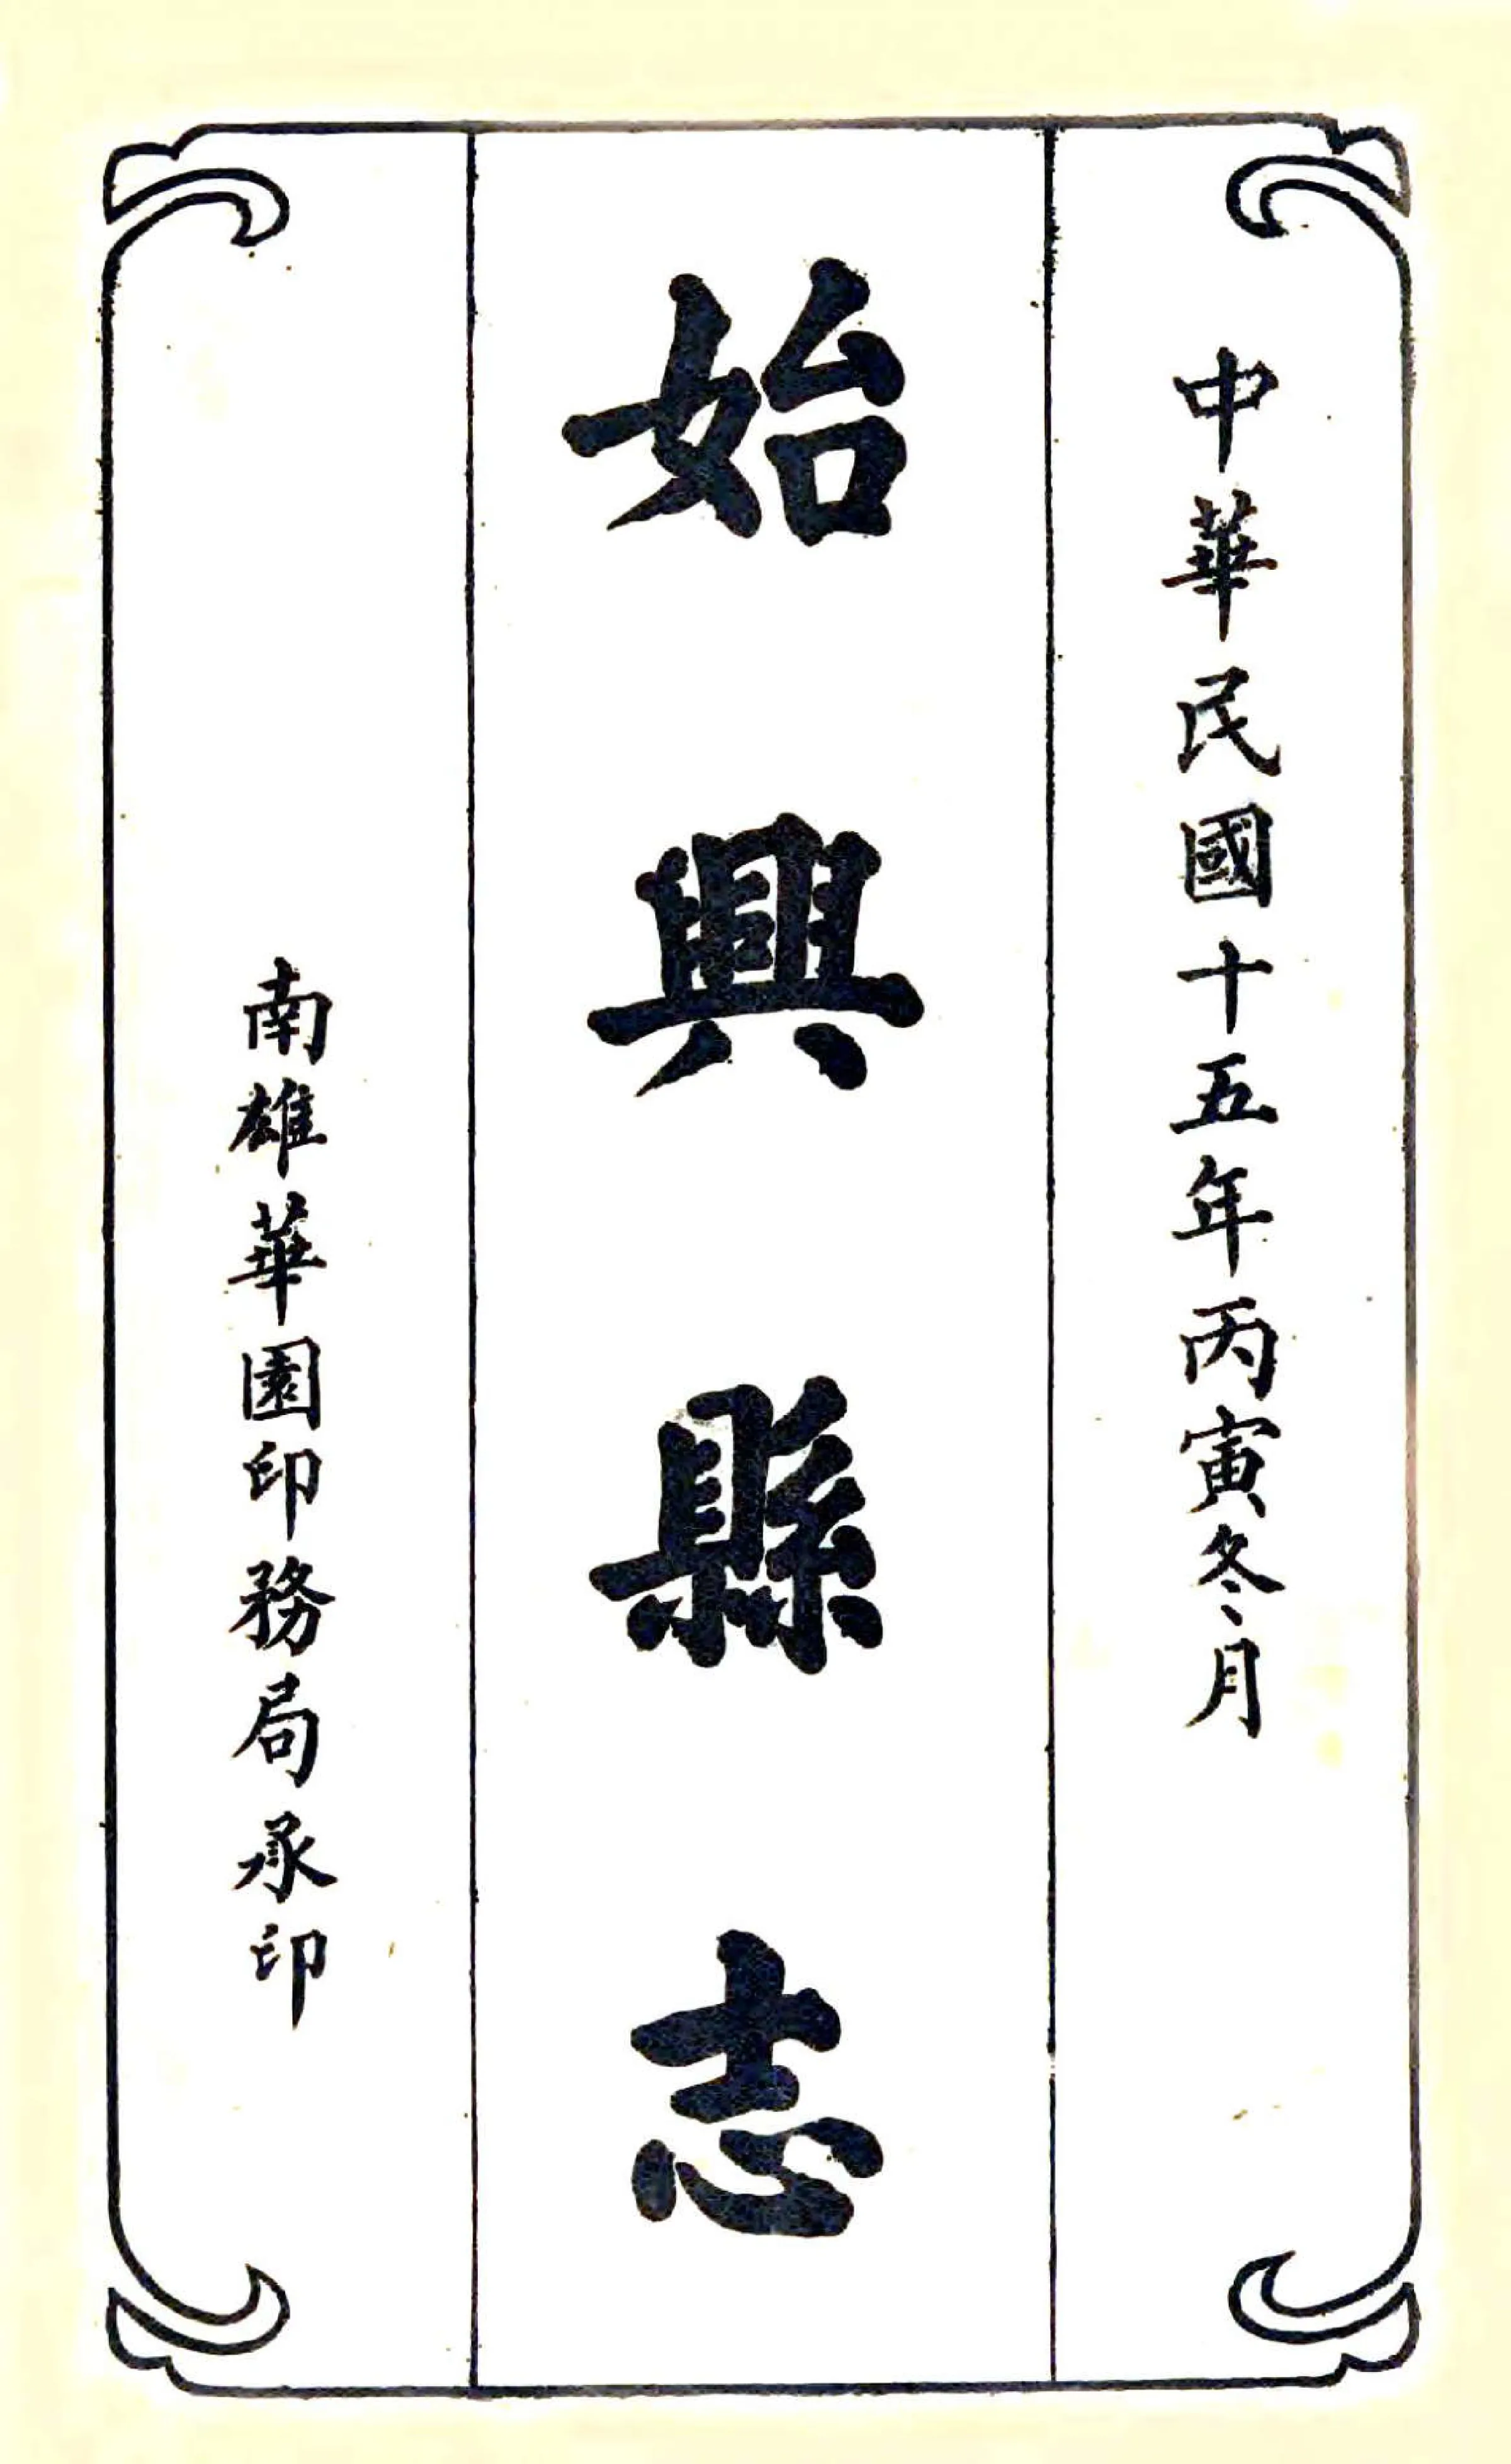 中華民國十五年丙寅冬月
始興縣志
南雄華園印務局承印